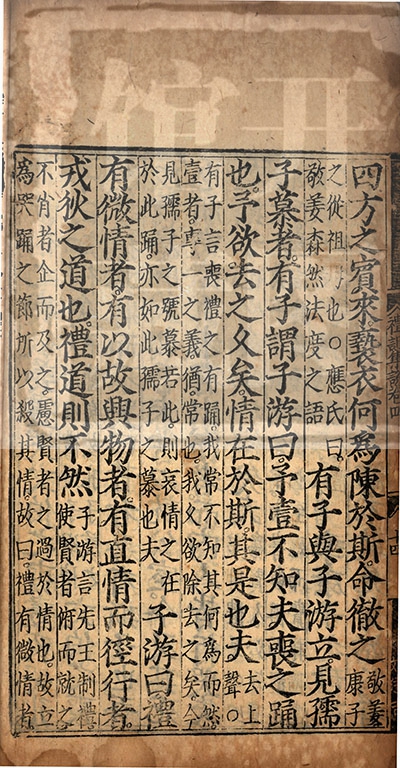 四方之賓來褻衣何爲陳於斯命徹之敬姜
康子
之從祖也○應氏曰
敬姜森然法度之語
有子與子游立見孺
子慕者有子謂子游曰予壹不知夫喪之踊
也予欲去之久矣情在於斯其是也夫去上
聲○
有子言喪禮之有踊我常不知其何爲而然
壹者專一之義猶常也我久欲除去之矣今
見孺子之號慕若此則哀情之在
於此踊亦如此孺子之慕也夫
子游曰禮
有微情者有以故興物者有直情而徑行者
戎狄之道也禮道則不然子游言先王制禮
使賢者俯而就之
不肖者企而及之慮賢者之過於情也故立
爲哭踊之節所以殺其情故曰禮有微情者